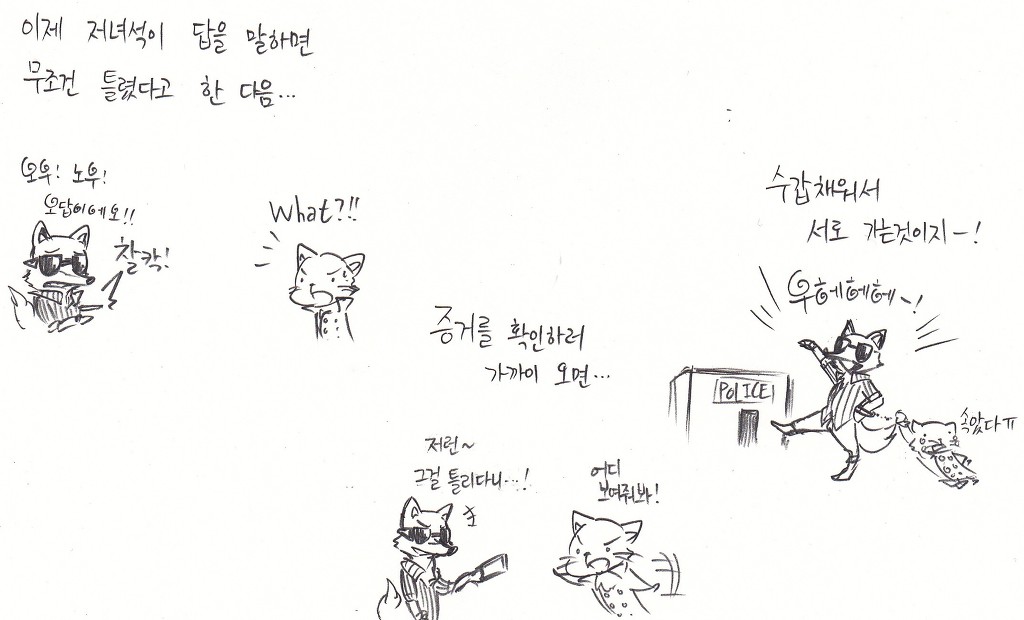 이제 저녀석이 답을 말하면
무조건 틀렸다고 한 다음...
오우! 노우!
오답이에오!!
찰칵!
What?!!
증거를 확인하러
가까이 오면...
저런~
그걸 틀리다니...!
어디
보여줘봐!
수갑채워서
서로 가는것이지-!
우헤헤헤~!
POLICE
속았다ㅠ